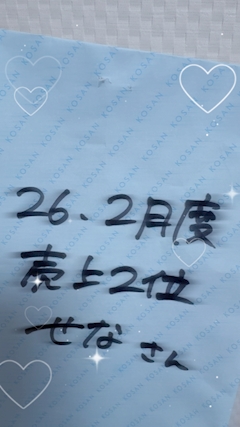 26、2月度
売上2位
せなさん
KOSAN KOSAN KOSAN KOSAN